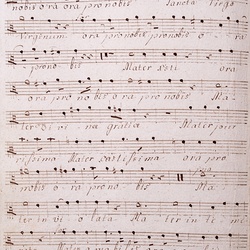 nobis ora ora pro nobis Sancta Virgo
Virginum ora pro nobis pro nobis o ra
pro no bis Mater Xsti ora
ora pro no bis ora pro nobis Ma
ter di vi na gratia Mater puri
rissima Mater castissima ora pro
nobis o ra pro no bis Ma
ter in vi o lata Ma ter in te me